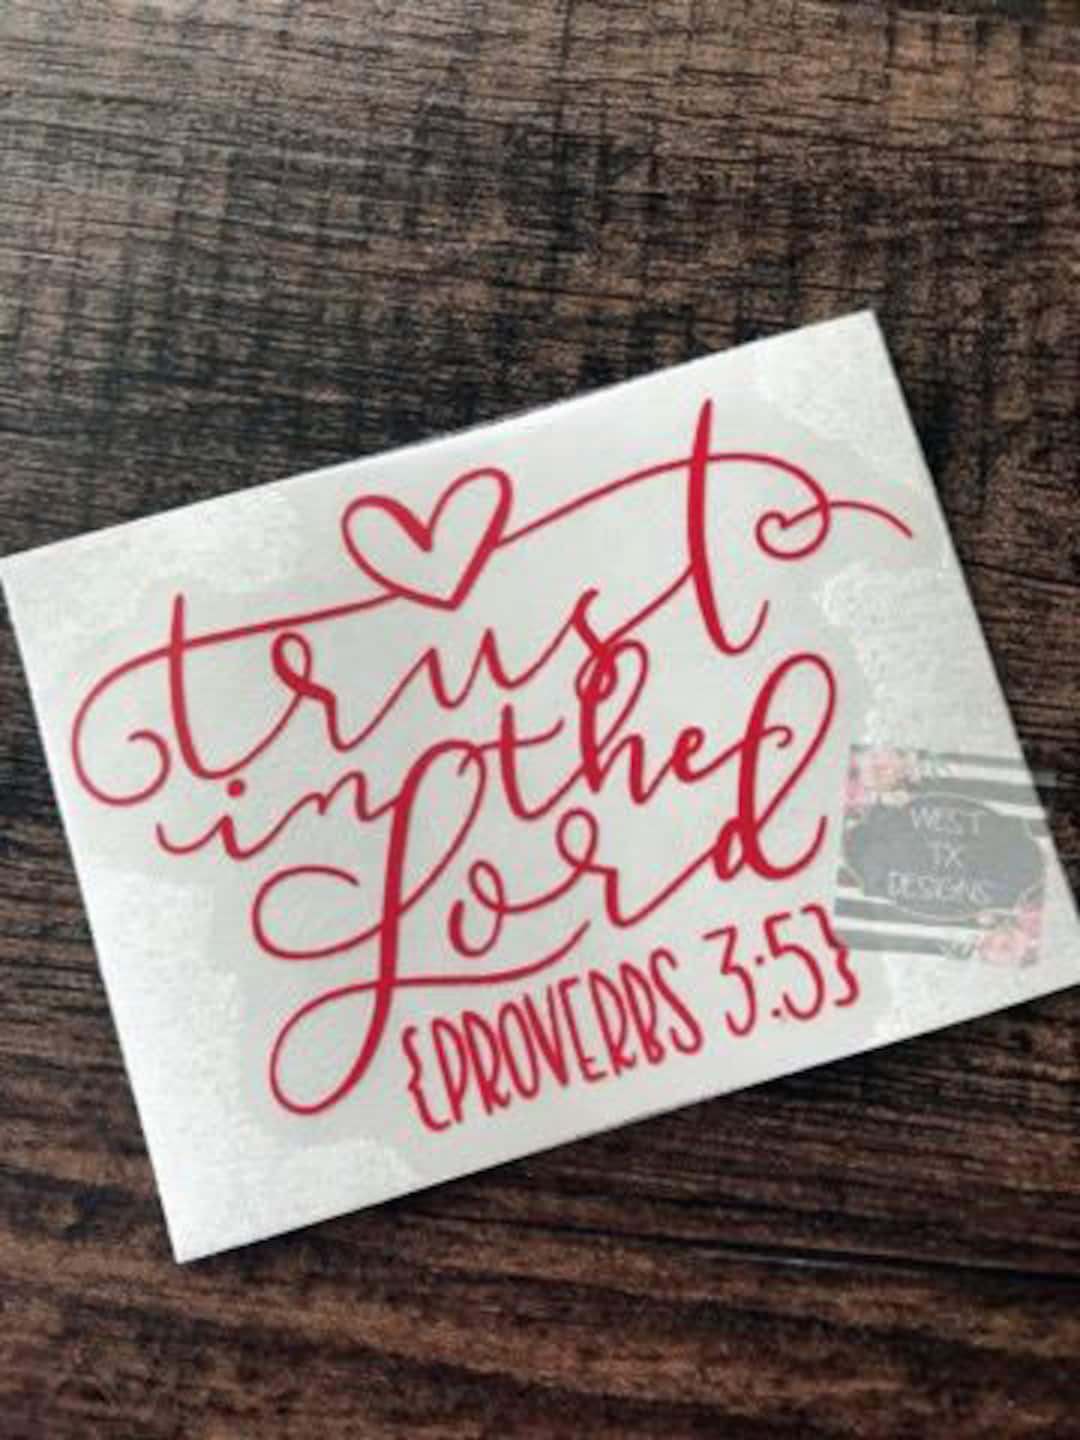 trust
in the
Lord
{PROVERBS 3:5}
WEST
TX
DESIGNS